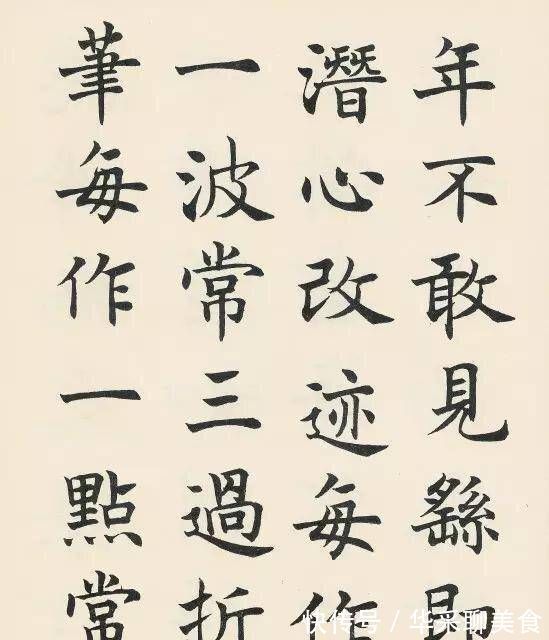 年不敢見繇
潛心改迹每作
一波常三過折
筆每作一點常
快传号 / 华采聊美食